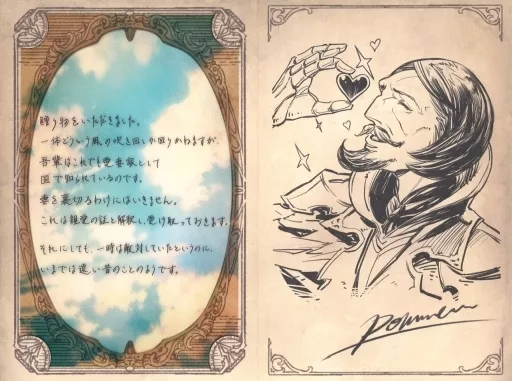 贈り物をいただきました。
一体どういう風の吹き回しか図りかねますが、
吾輩はこれでも愛妻家として
国で知られているのです。
妻を裏切るわけにはいきません。
これは親愛の証と解釈し受け取っておきます。
それにしても、一時は敵対していたというのに、
いまでは遠い昔のことのようです。